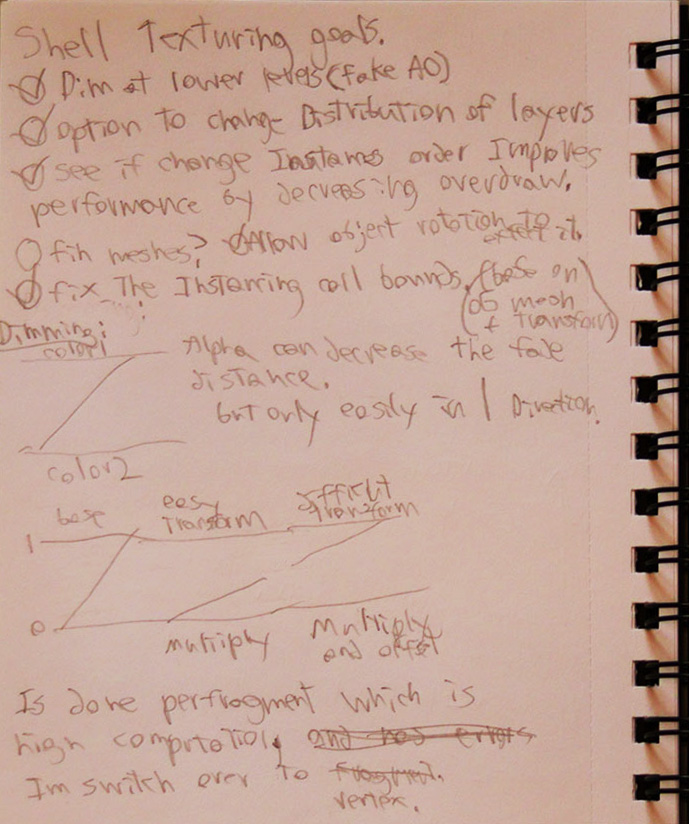 Shell Texturing goals.
Dim at lower levels (fake AO)
option to change Distribution of layers
see if change Instances order Improves
performance by decreasing overdraw.
fin meshes? Allow object rotation to
effect it.
fix The Instancing call bounds. (base on
OG mesh
+ transform)
Dimming:
color1
Alpha can decrease the fade
distance.
but only easily in 1 Direction.
color2
base easy difficult
Transform transform
1
0
multiply Multiply
and offset
Is done perfragment which is
high computation, and has errors
Im switch over to fragment.
vertex.